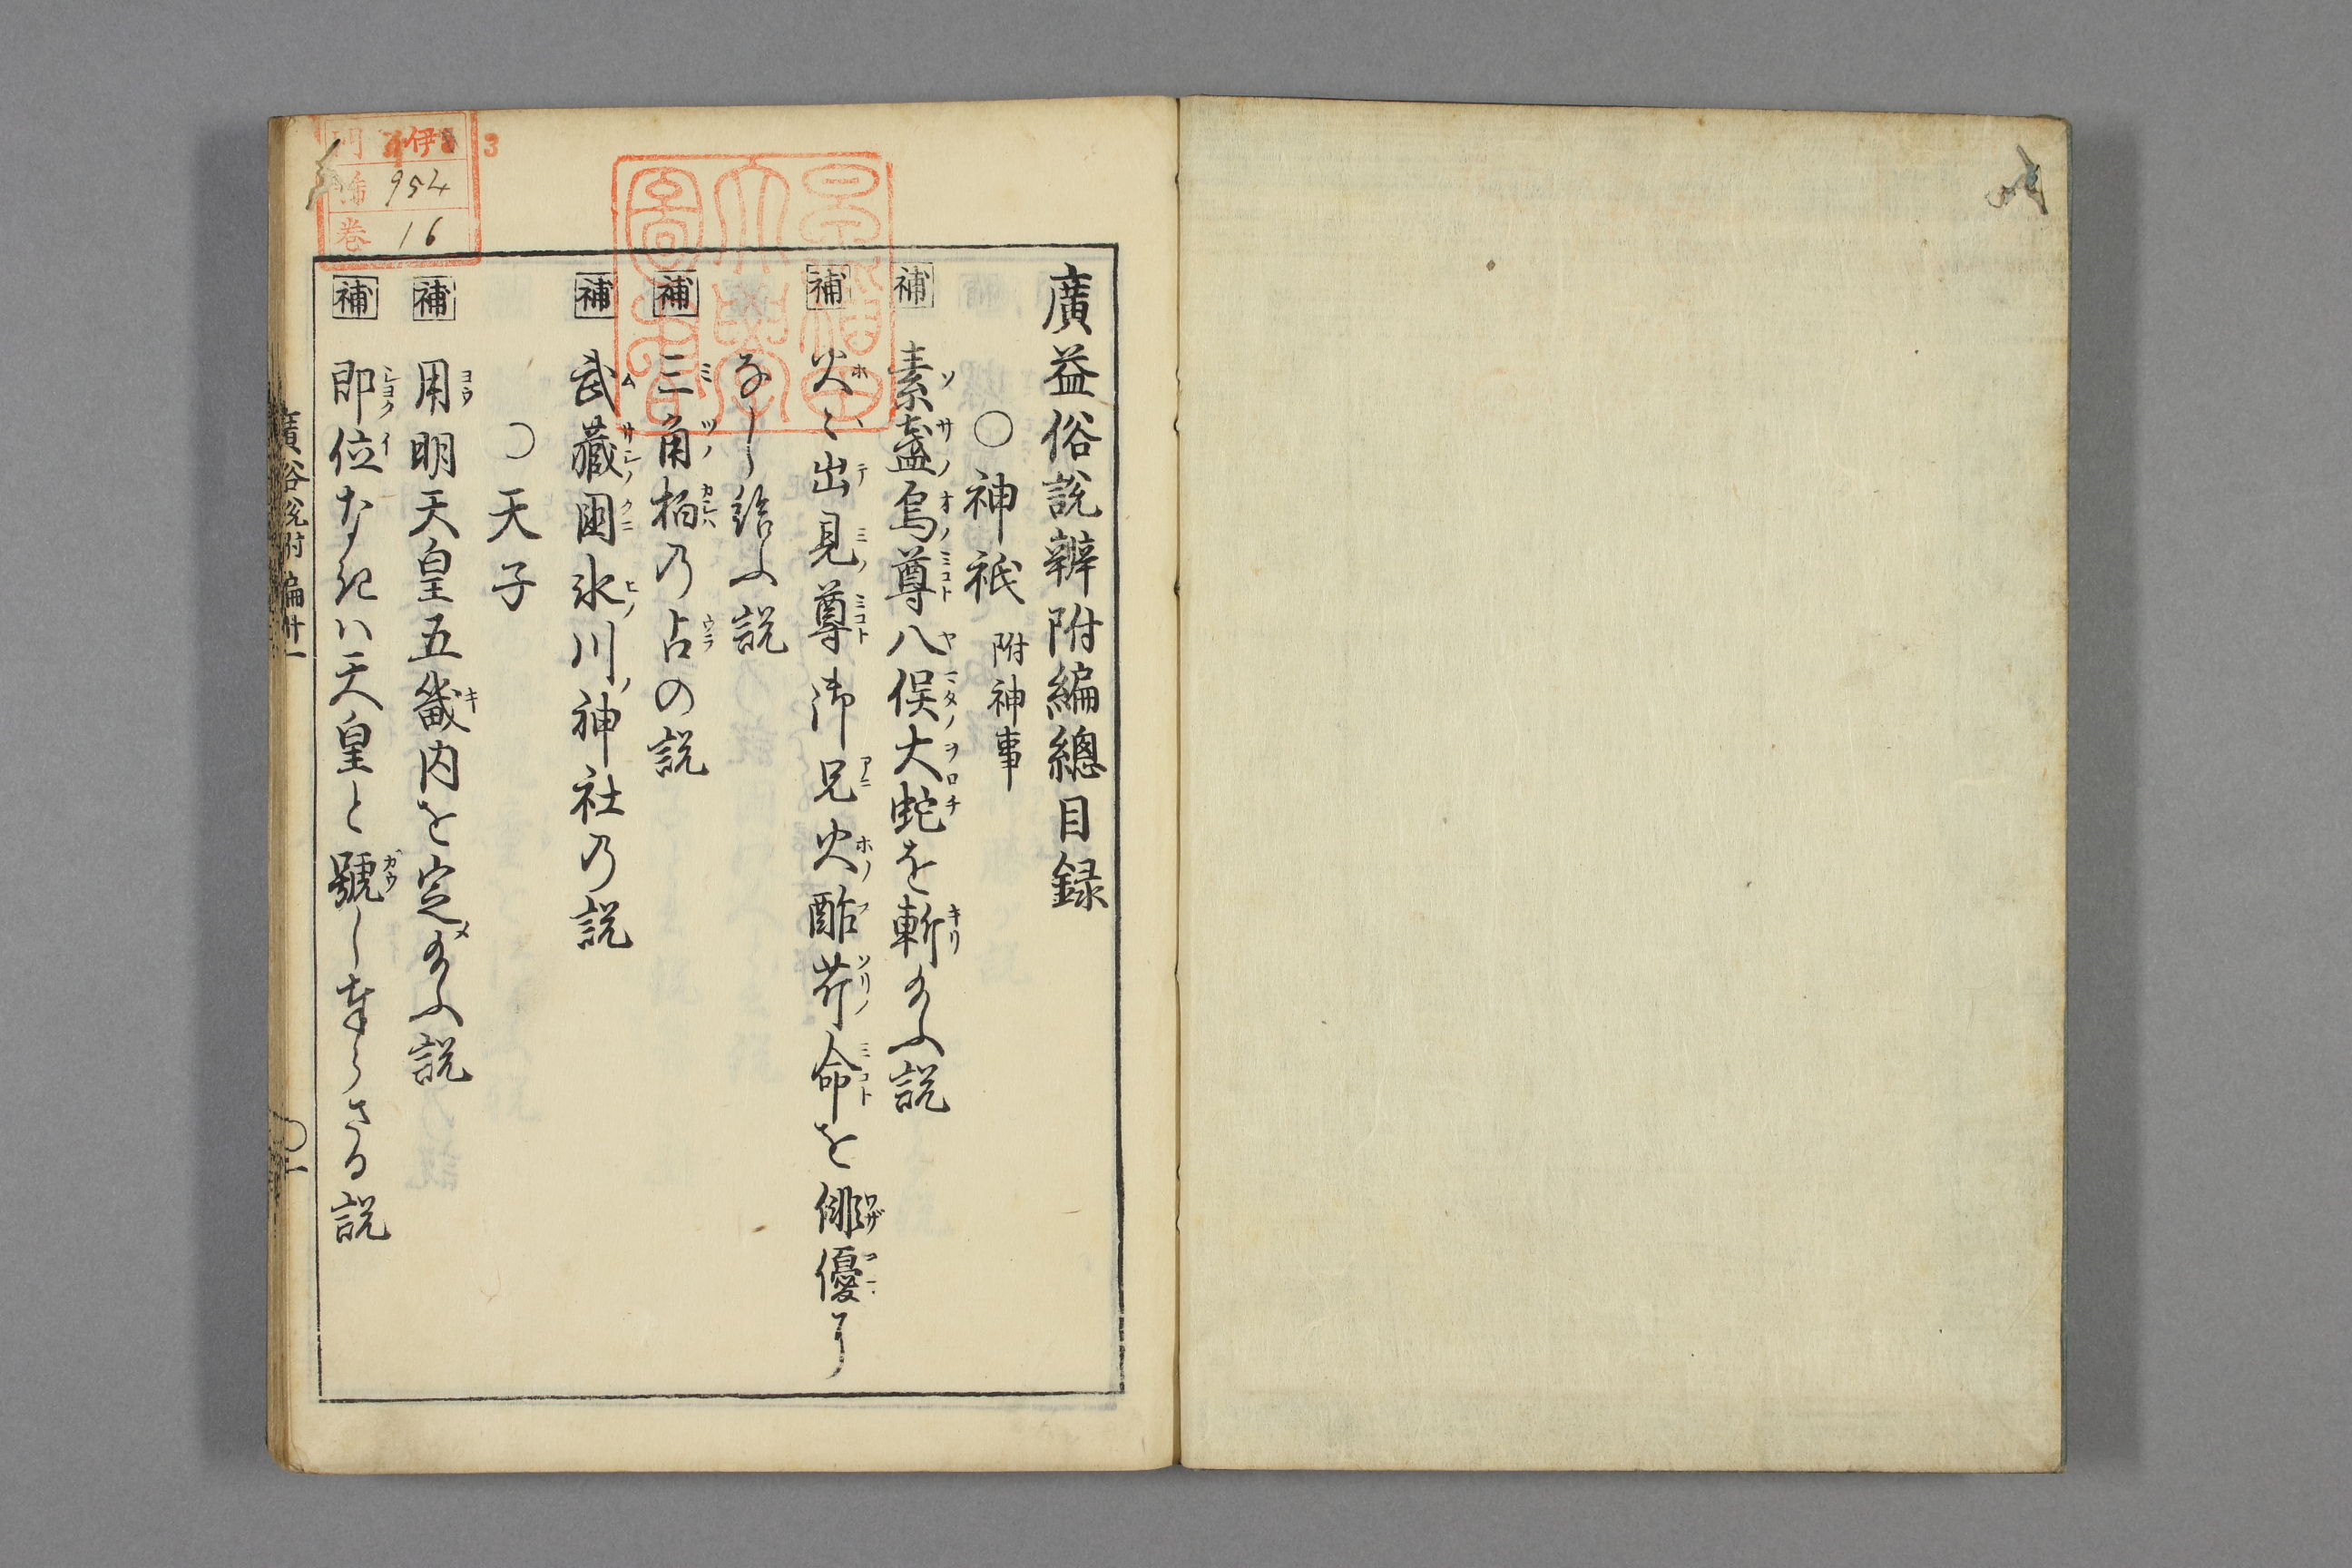 廣益俗說辨附編總目録
○神祇 附神事
補 素盞烏尊八俣大蛇を斬給ふ説
補 火〻出見尊御兄火酢芹命を俳優に
なし給ふ説
補 三角栢乃占の説
補 武藏國氷川神社乃説
○天子
補 用明天皇五畿内を定給ふ説
補 即位なきハ天皇と號し奉らさる説
廣俗説附編廿一
○一
伊 3
門
番 954
巻 16
早稲田
大學
圖書